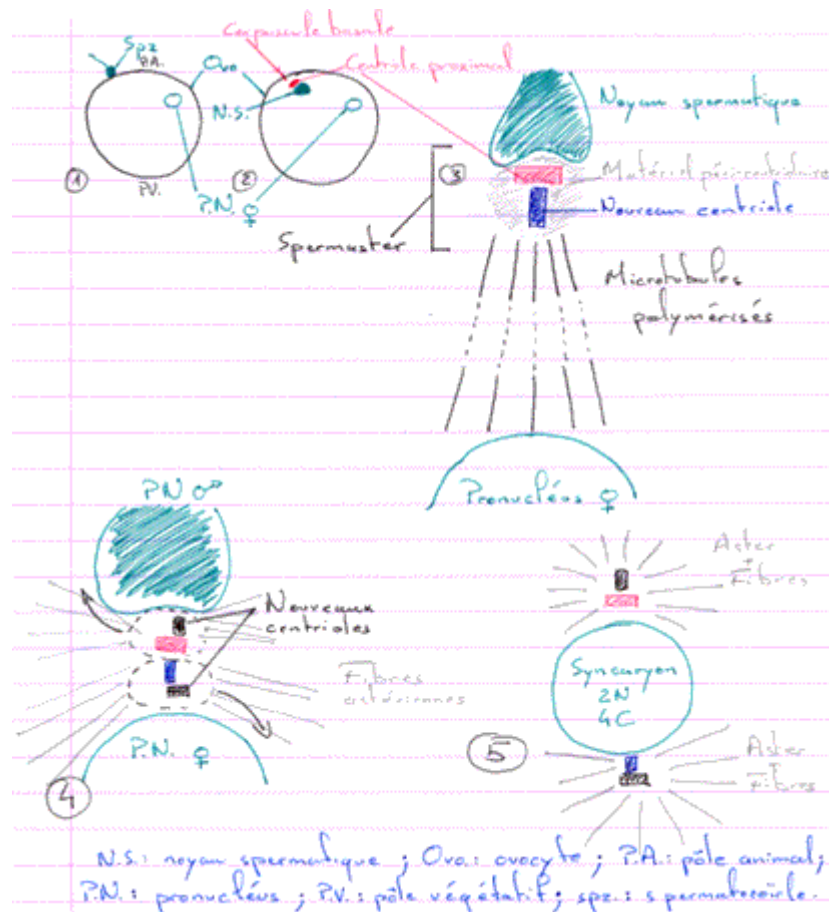 Corpuscule basale
Centriole proximal
Spz
P.A.
Ovo
N.S.
P.V.
P.N. ♀
1
2
3
Noyau spermatique
Matériel péri-centriolaire
Nouveau centriole
Spermaster
Microtubules
polymérisés
Pronucléus ♀
PN ♂
Nouveaux
centrioles
Fibres
astériennes
P.N. ♀
4
Aster
+
Fibres
Syncaryon
2N
4C
5
Aster
+
Fibres
N.S.: noyau spermatique ; Ovo.: ovocyte ; P.A.: pôle animal;
P.N.: pronucléus ; P.V.: pôle végétatif; spz.: spermatozoïde.